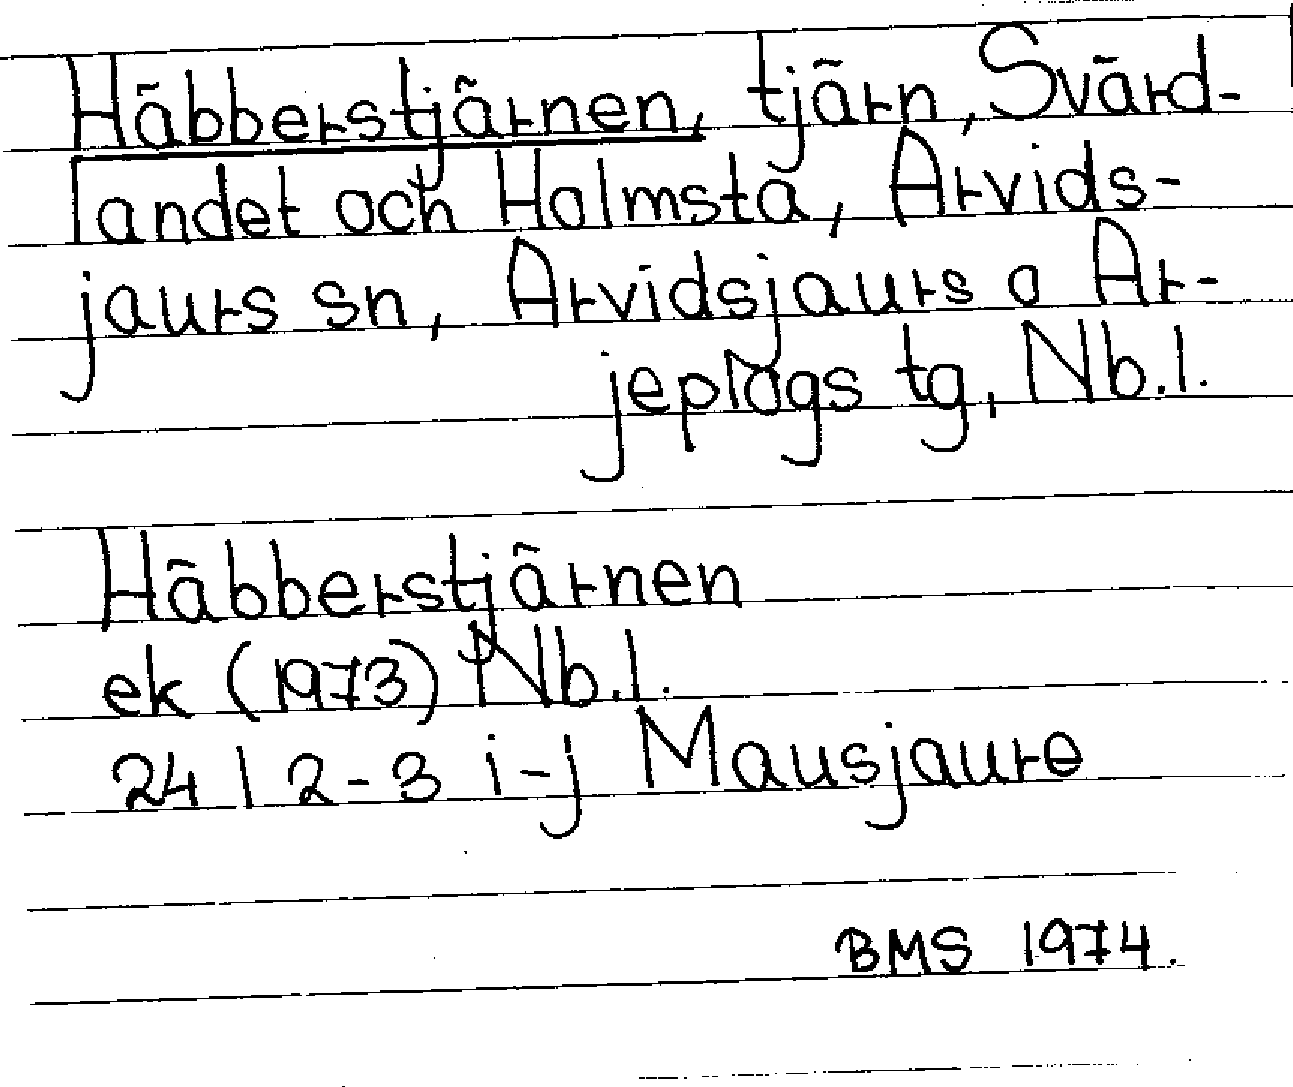 Häbberstjärnen, tjärn, Svärd-
landet och Holmsta, Arvids-
jaurs sn, Arvidsjaurs o Ar-
jeplogs tg, Nb.l.
Häbberstjärnen
ek (1973) Nb.l.
24 I 2-3 i-j Mausjaure
BMS 1974.